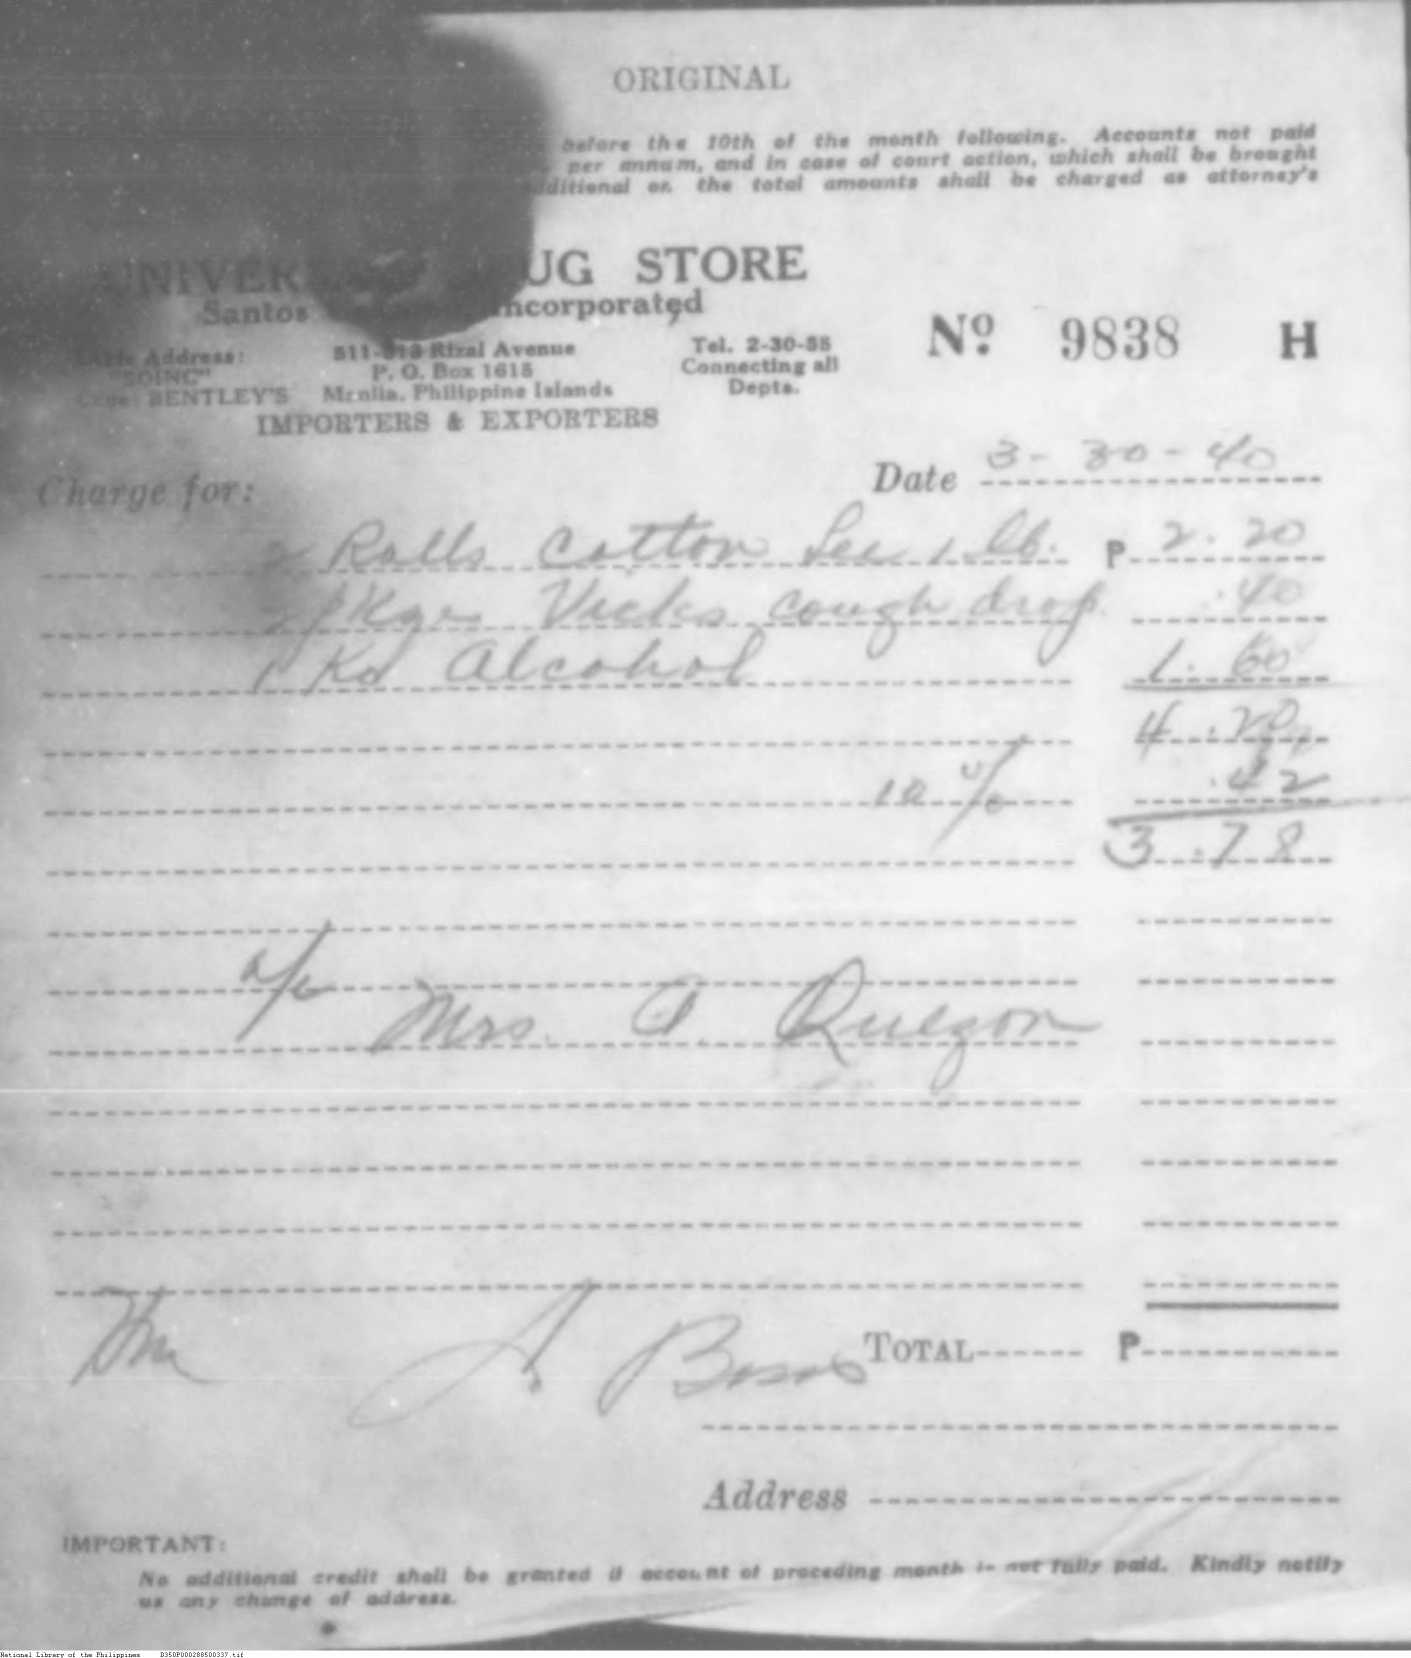 ORIGINAL
before the 10th of the month following. Accounts not paid
per annum, and in case of court action, which shall be brought
additional on the total amounts shall be charged as attorney's
UNIVER UG STORE
Santos Incorporated
Nº 9838 H
Address: 511-513 Rizal Avenue Tel. 2-30-55
"SOINC" P. O. Box 1615 Connecting all
BENTLEY'S Manila, Philippine Islands Depts.
IMPORTERS & EXPORTERS
Date 3-30-40
Charge for:
2 Rolls Cotton 1 lb. P 2.20
2 pkgs Vicks cough drop .40
1 Ko Alcohol 1.60
4.20
10% .42
3.78
a/c
Mrs. A. Quezon
TOTAL P
Address
IMPORTANT:
No additional credit shall be granted if account of preceding month is not fully paid. Kindly notify
us any change of address.
National Library of the Philippines D350P000288500337.tif